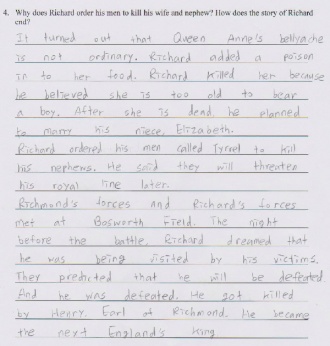 4. Why does Richard order his men to kill his wife and nephew? How does the story of Richard
end?
It turned out that Queen Anne's bellyache
is not ordinary. Richard added a poison
in to her food. Richard killed her because
he believed she is too old to bear
a boy. After she is dead, he planned
to marry his niece, Elizabeth.
Richard ordered his men called Tyrrel to kill
his nephews. He said they will threaten
his royal line later.
Richmond's forces and Richard's forces
met at Bosworth Field. The night
before the battle, Richard dreamed that
he was being visited by his victims.
They predicted that he will be defeated.
And he was defeated. He got killed
by Henry, Earl of Richmond. He became
the next England's king.